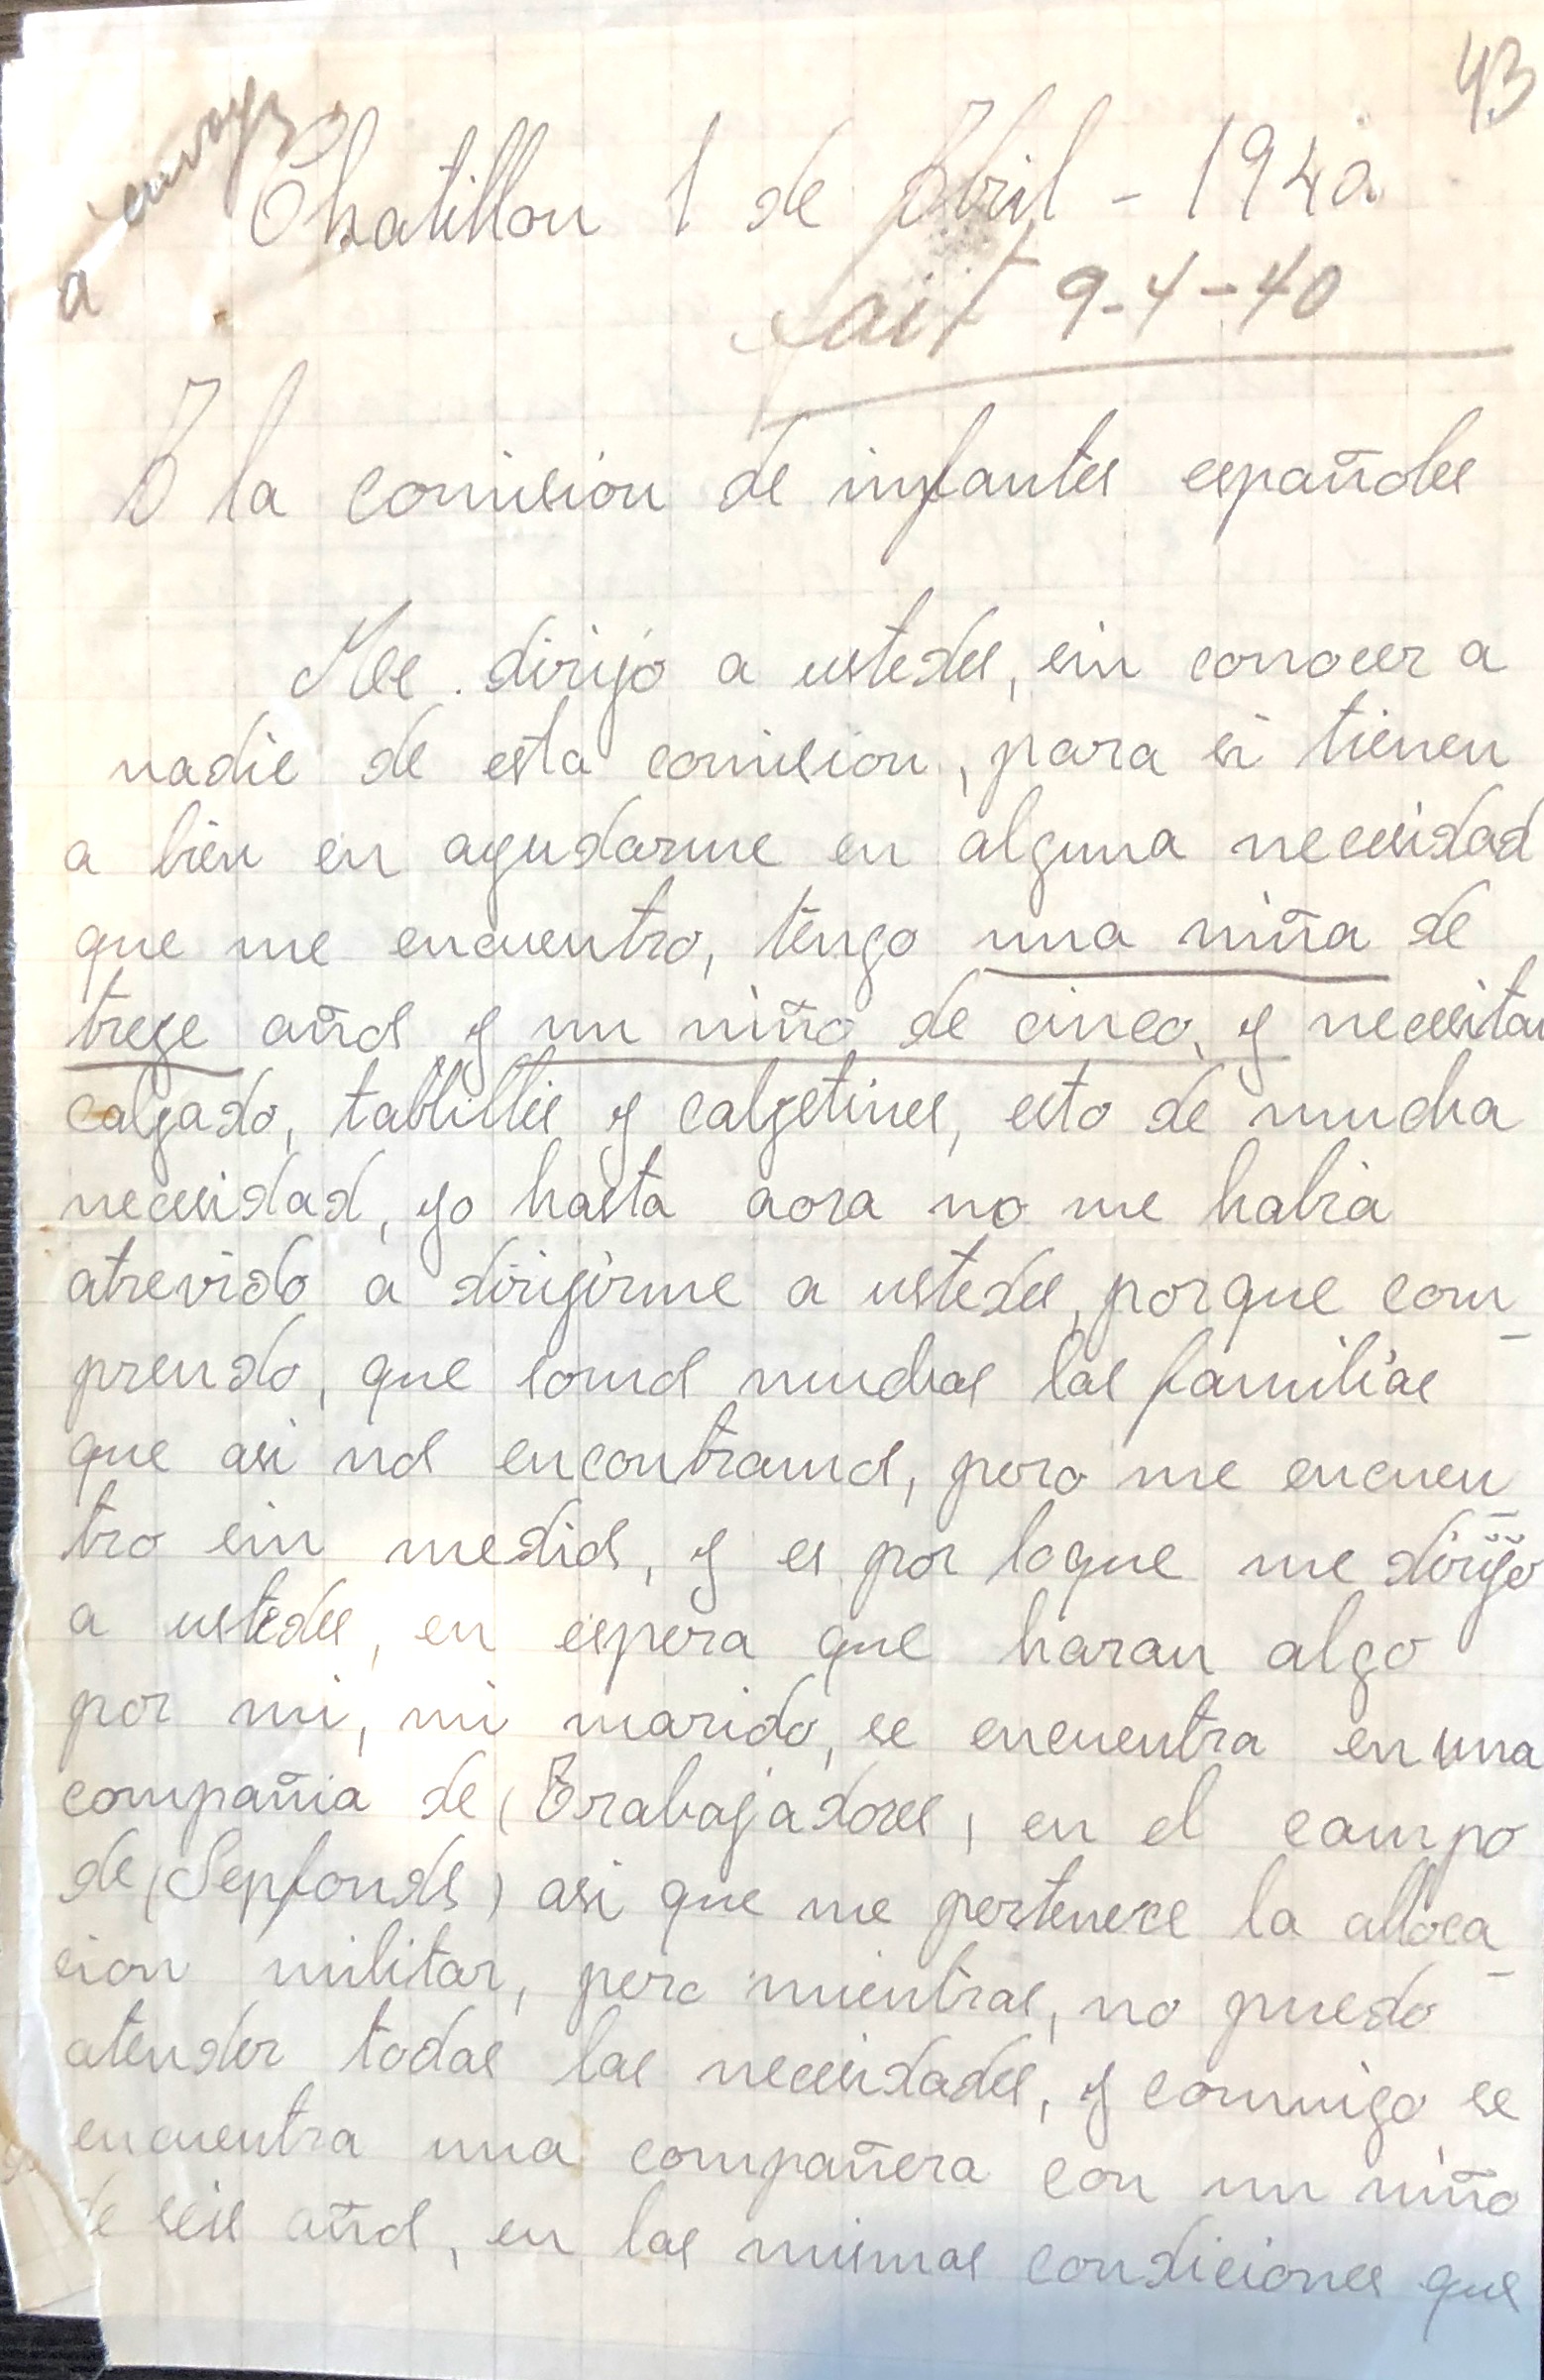 43
à envoyer
Chatillon 1 de Abril - 1940
fait 9-4-40
A la comision de infantes españoles
Me dirijo a ustedes, sin conocer a
nadie de esta comision, para si tienen
a bien en ayudarme en alguna necesidad
que me encuentro, tengo una niña de
treze años y un niño de cinco, y necesitan
calzado, tablillies y calzetines, esto de mucha
necesidad, yo hasta aora no me habia
atrevido a dirigirme a ustedes, porque com_
prendo, que somos muchas las familias
que asi nos encontramos, pero me encuen_
tro sin medios, y es por loque me dirijo
a ustedes, en espera que haran algo
por mi, mi marido, se encuentra en una
compañia de (Trabajadores) en el campo
de (Sepfonds) asi que me pertenece la alloca_
cion militar, pero mientras, no puedo
atender todas las necesidades, y conmigo se
encuentra una compañera con un niño
de seis años, en las mismas condiciones que